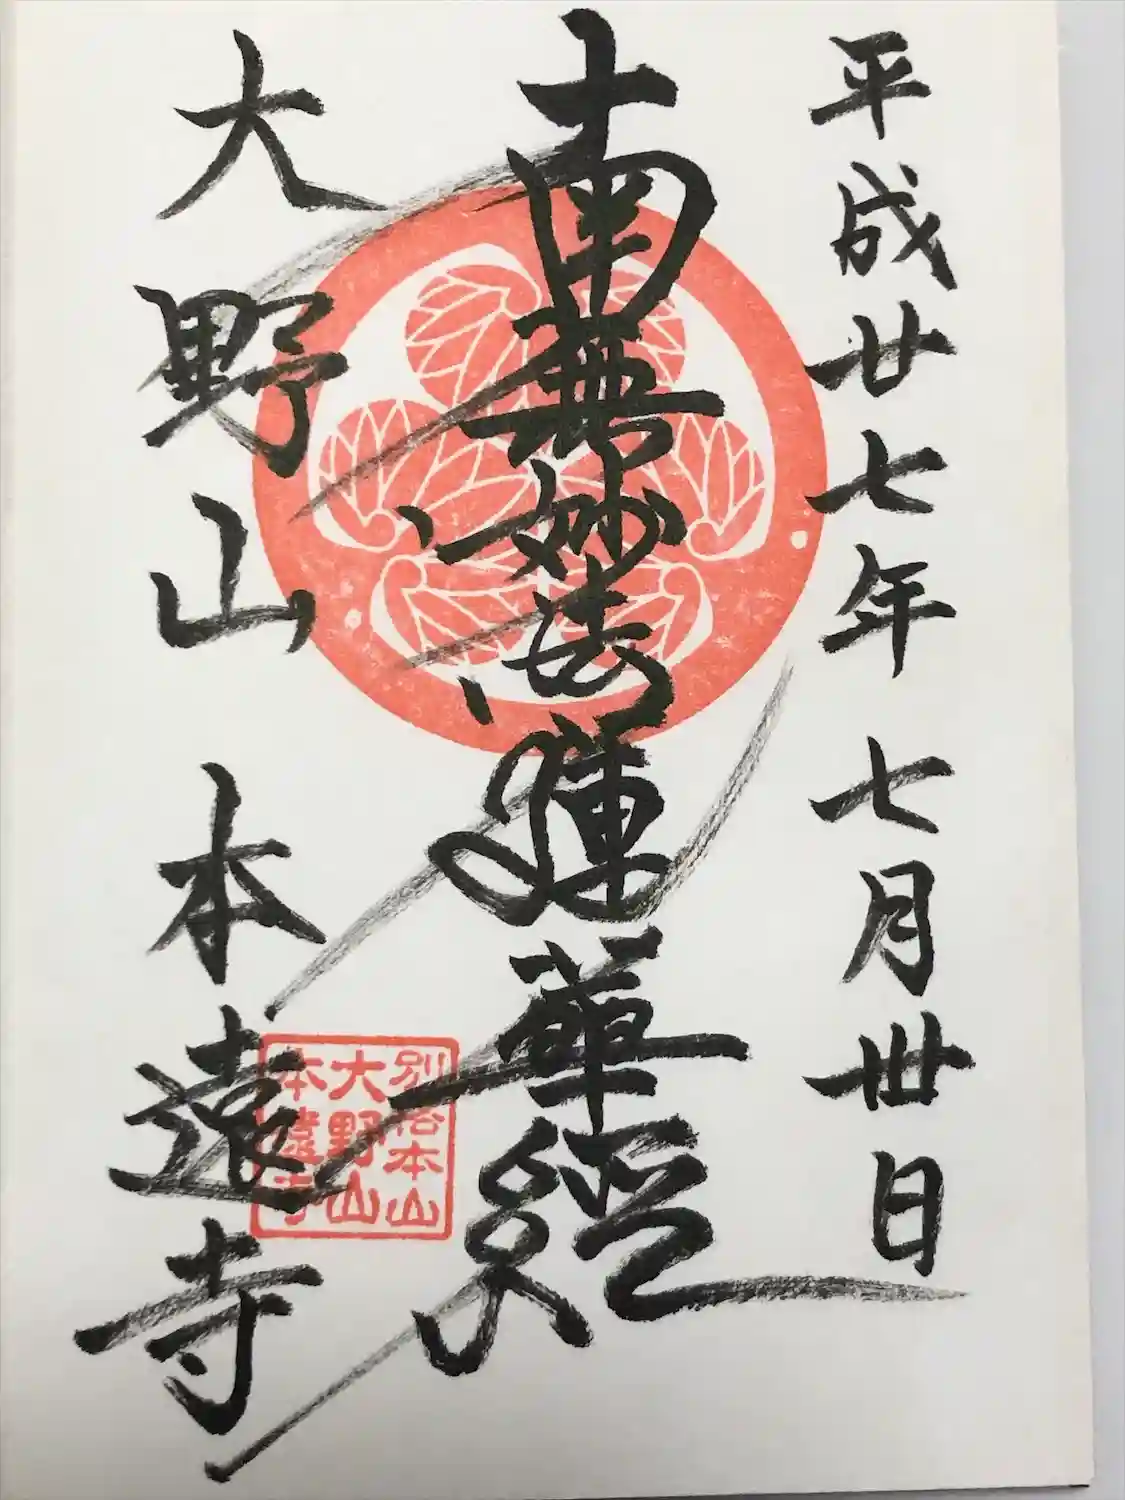 平成廿七年七月丗日
南無妙法蓮華経
大野山 本遠寺
別格本山
大野山
本遠寺